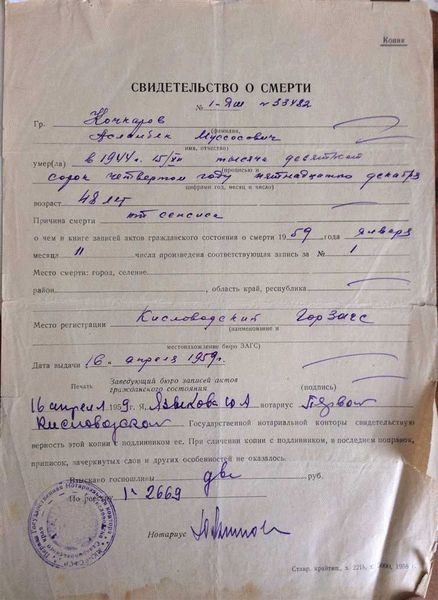 Копия
СВИДЕТЕЛЬСТВО О СМЕРТИ
№ 1-ЯШ № 33482
Гр. Кочкаров
(фамилия,
Асланбек Муссосович
имя, отчество)
умер(ла) в 1944 г. 15/XII тысяча девятьсот
(прописью и
сорок четвертом году пятнадцатого декабря
цифрами год, месяц и число)
возраст 48 лет
Причина смерти от сепсиса
о чем в книге записей актов гражданского состояния о смерти 1959 года января
месяца 11 числа произведена соответствующая запись за № 1
Место смерти: город, селение
район, область край, республика
Место регистрации Кисловодский ГорЗагс
(наименование и
местонахождение бюро ЗАГС)
Дата выдачи 16 апреля 1959 г.
Печать Заведующий бюро записей актов
гражданского состояния (подпись)
16 апреля 1959 г. Я, нотариус Первой
Кисловодской Государственной нотариальной конторы свидетельствую
верность этой копии с подлинником ее. При сличении копии с подлинником, в последнем поправок,
приписок, зачеркнутых слов и других особенностей не оказалось.
Взыскано госпошлины две руб.
По реестру 1-2669
Нотариус
Ставр. крайтип., з. 1958 г.